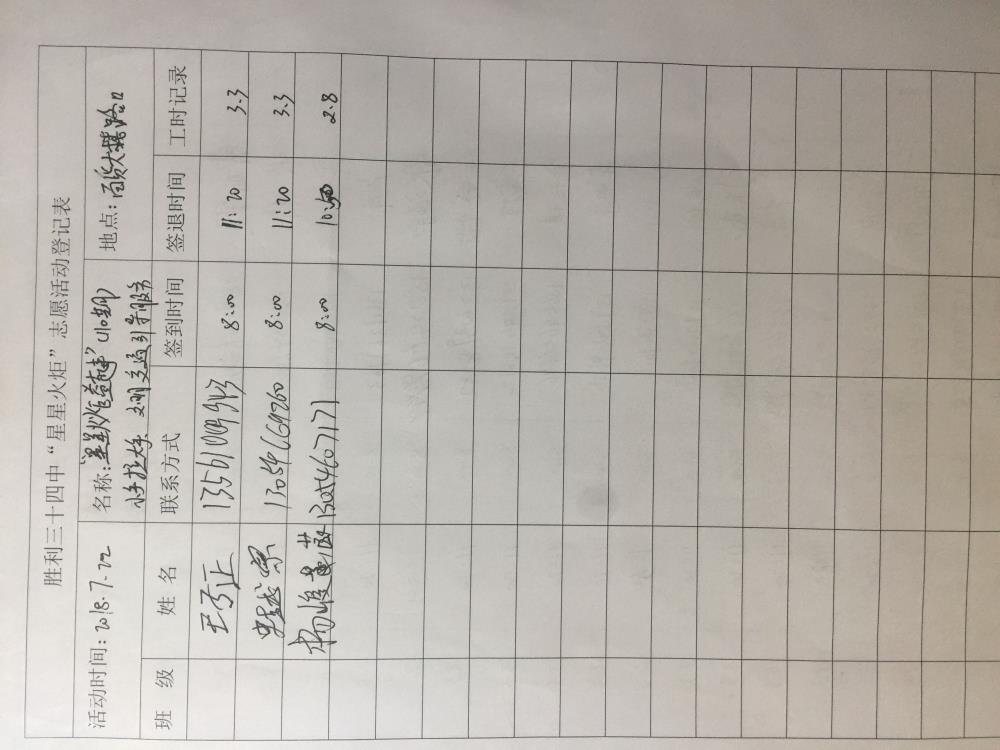 胜利三十四中“星星火炬”志愿活动登记表
活动时间:2018.7.22 名称:星星火炬 地点:百货大楼路口
文明交通引导服务
班 级 姓 名 联系方式 签到时间 签退时间 工时记录
王守正 13561009943 8:00 11:20 3.3
13054669760 8:00 11:20 3.3
杨 13054607171 8:00 10:50 2.8